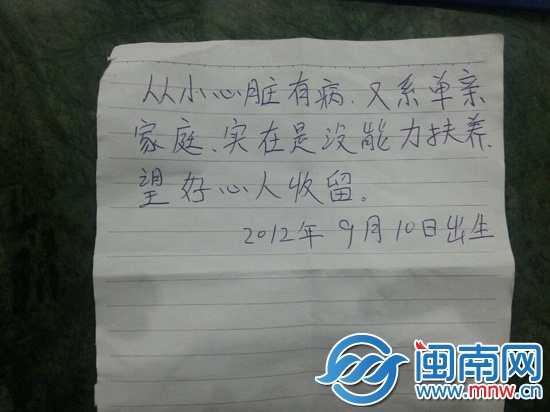 从小心脏有病.又系单亲
家庭、实在是没能力扶养.
望好心人收留。
2012年9月10日出生
闽南网
www.mnw.cn